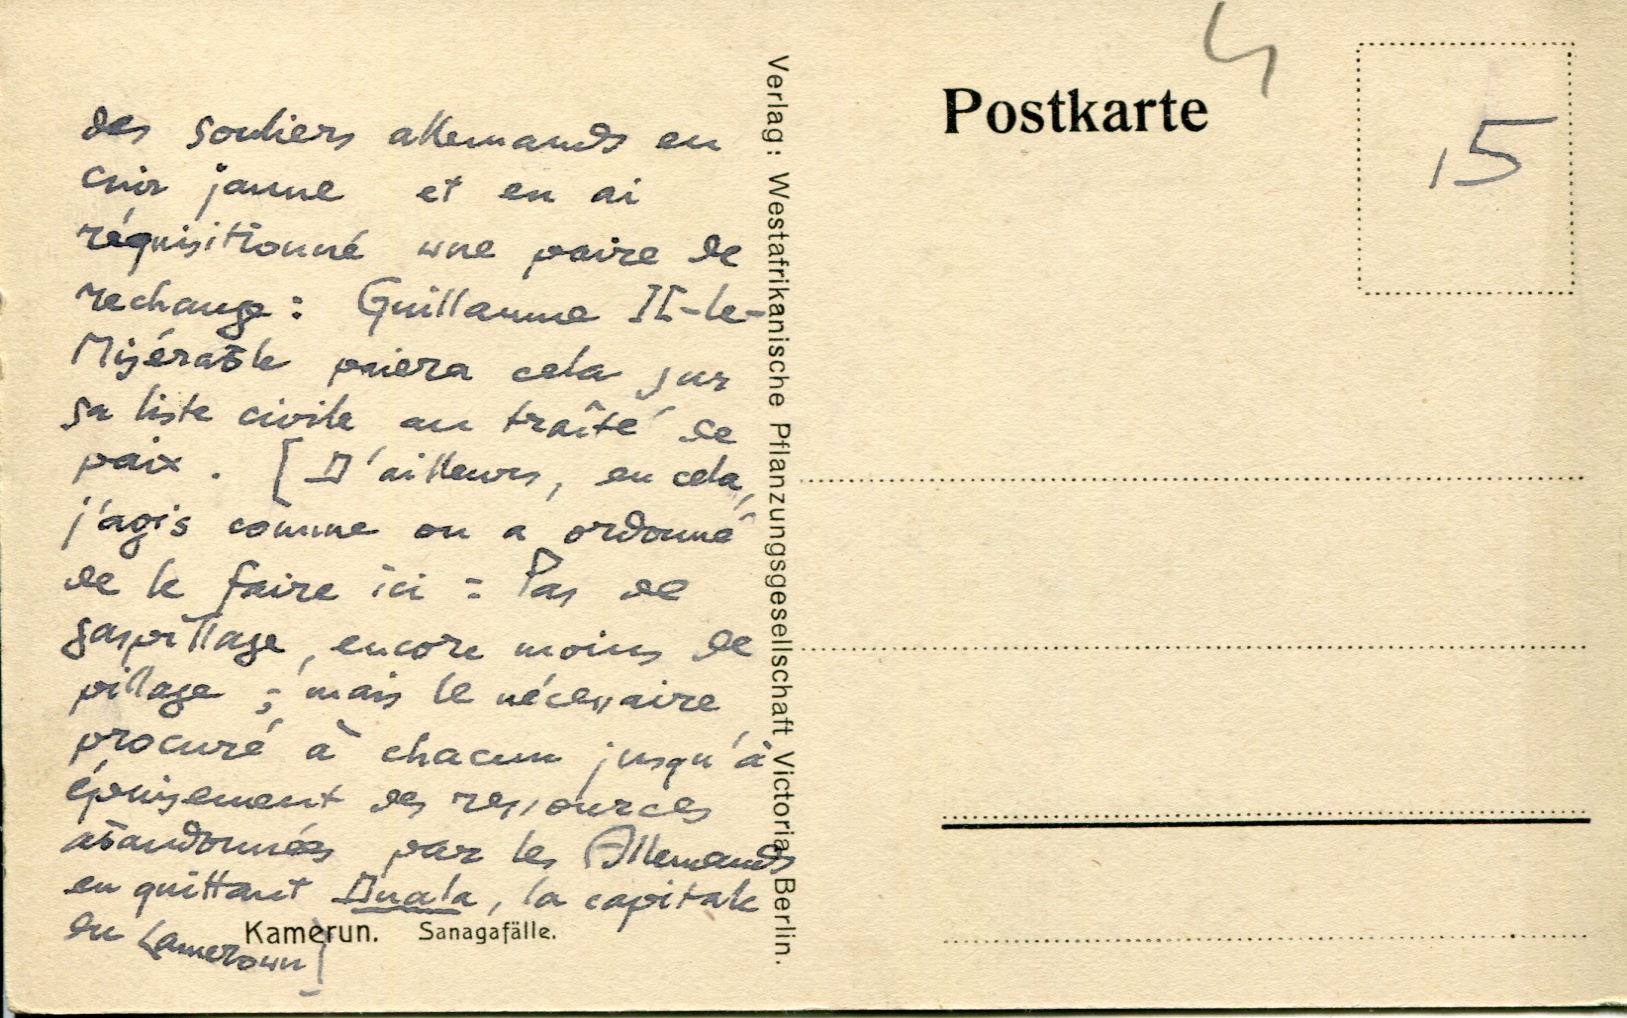 des souliers allemands en
cuir jaune et en ai
réquisitionné une paire de
rechange : Guillaume II-le-
Misérable paiera cela sur
sa liste civile au traîté de
paix . [ D'ailleurs, en cela,
j'agis comme on a ordonné
de le faire ici : Pas de
gaspillage, encore moins de
pillage ; mais le nécessaire
procuré à chacun jusqu'à
épuisement des ressources
abandonnées par les Allemands
en quittant Duala, la capitale
du Cameroun]
Kamerun. Sanagafälle.
Verlag: Westafrikanische Pflanzungsgesellschaft Victoria, Berlin.
4
Postkarte
15